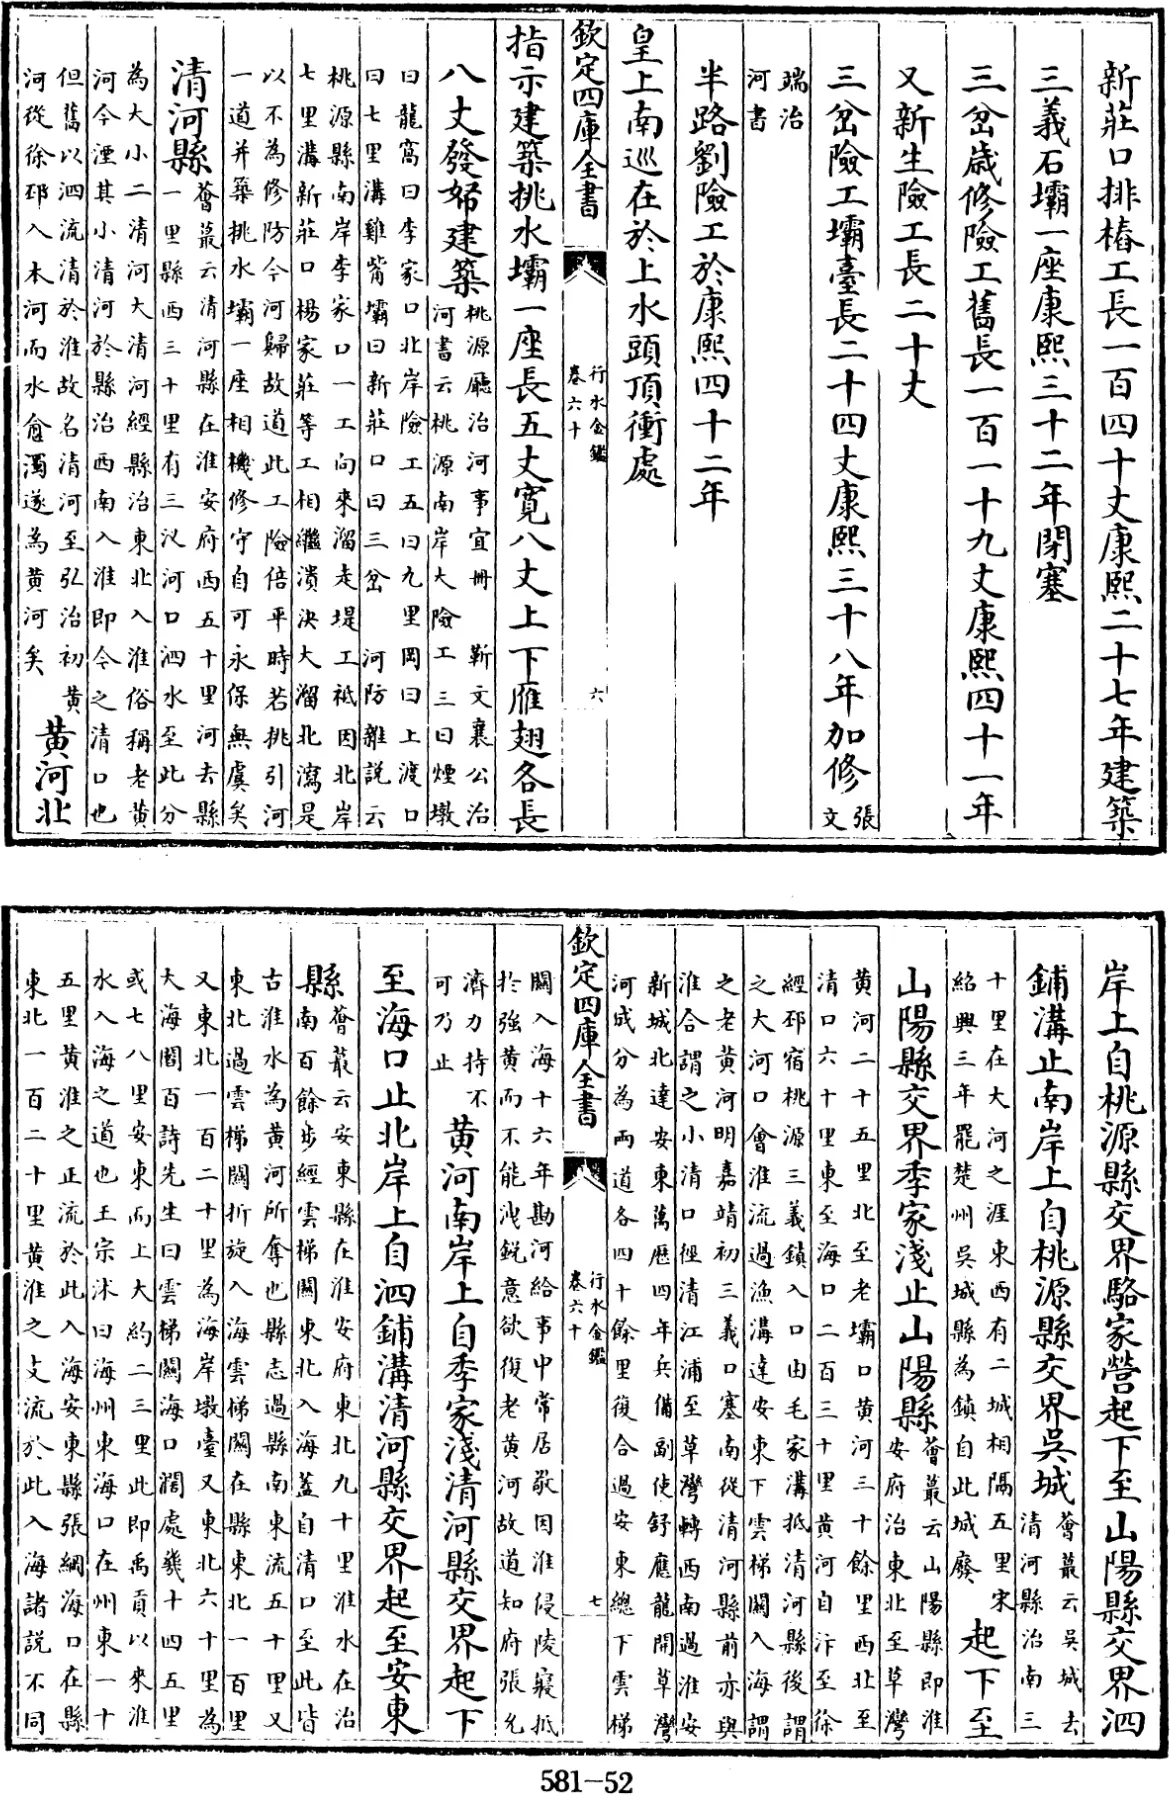 新莊口排樁工長一百四十丈康熙二十七年建築
三義石壩一座康熙三十二年閉塞
三岔歲修險工舊長一百一十九丈康熙四十一年
又新生險工長二十丈
三岔險工壩臺長二十四丈康熙三十八年加修張
文
端治
河書
半路劉險工於康熙四十二年
皇上南巡在於上水頭頂衝處
欽定四庫全書
行水金鑑
卷六十
六
指示建築挑水壩一座長五丈寛八丈上下雁翅各長
八丈發帑建築桃源廳治河事宜冊 靳文襄公治
河書云桃源南岸大險工三曰煙墩
曰龍窩曰李家口北岸險工五曰九里岡曰上渡口
曰七里溝雞嘴壩曰新莊口曰三岔 河防雜説云
桃源縣南岸李家口一工向來溜走堤工祗因北岸
七里溝新莊口楊家莊等工相繼潰決大溜北瀉是
以不為修防今河歸故道此工險倍平時若挑引河
一道并築挑水壩一座相機修守自可永保無虞矣
清河縣薈蕞云清河縣在淮安府西五十里河去縣
一里縣西三十里有三汊河口泗水至此分
為大小二清河大清河經縣治東北入淮俗稱老黄
河今湮其小清河於縣治西南入淮即今之清口也
但舊以泗流清於淮故名清河至弘治初黄
河從徐邳入本河而水愈濁遂為黄河矣
黄河北
岸上自桃源縣交界駱家營起下至山陽縣交界泗
鋪溝止南岸上自桃源縣交界吳城薈蕞云吳城去
清河縣治南三
十里在大河之涯東西有二城相隔五里宋
紹興三年罷楚州吳城縣為鎮自此城廢
起下至
山陽縣交界季家淺止山陽縣薈蕞云山陽縣即淮
安府治東北至草灣
黄河二十五里北至老壩口黄河三十餘里西北至
清口六十里東至海口二百三十里黄河自汴至徐
經邳宿桃源三義鎮入口由毛家溝抵清河縣後謂
之大河口會淮流過漁溝達安東下雲梯關入海謂
之老黄河明嘉靖初三義口塞南從清河縣前亦與
淮合謂之小清口徑清江浦至草灣轉西南過淮安
新城北達安東萬厯四年兵備副使舒應龍開草灣
河成分為兩道各四十餘里復合過安東總下雲梯
欽定四庫全書
行水金鑑
卷六十
七
關入海十六年勘河給事中常居敬因淮侵陵寢抵
於強黄而不能洩鋭意欲復老黄河故道知府張允
濟力持不
可乃止
黄河南岸上自季家淺清河縣交界起下
至海口止北岸上自泗鋪溝清河縣交界起至安東
縣薈蕞云安東縣在淮安府東北九十里淮水在治
南百餘步經雲梯關東北入海蓋自清口至此皆
古淮水為黄河所奪也縣志過縣南東流五十里又
東北過雲梯關折旋入海雲梯關在縣東北一百里
又東北一百二十里為海岸墩臺又東北六十里為
大海閻百詩先生曰雲梯關海口濶處幾十四五里
或七八里安東而上大約二三里此即禹貢以來淮
水入海之道也王宗沐曰海州東海口在州東一十
五里黄淮之正流於此入海安東縣張綱海口在縣
東北一百二十里黄淮之支流於此入海諸説不同
581-52